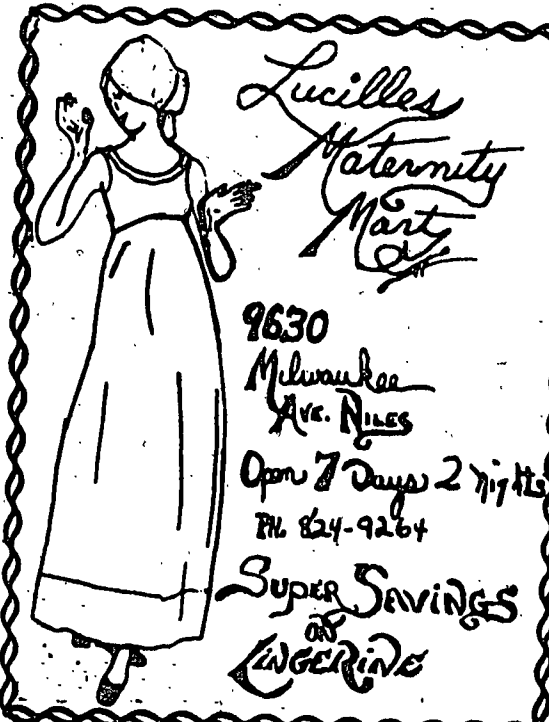 Lucilles
Maternity
Mart
9630
Milwaukee
Ave. Niles
Open 7 Days 2 Nights
PH. 824-9264
Super Savings
on
Lingerine